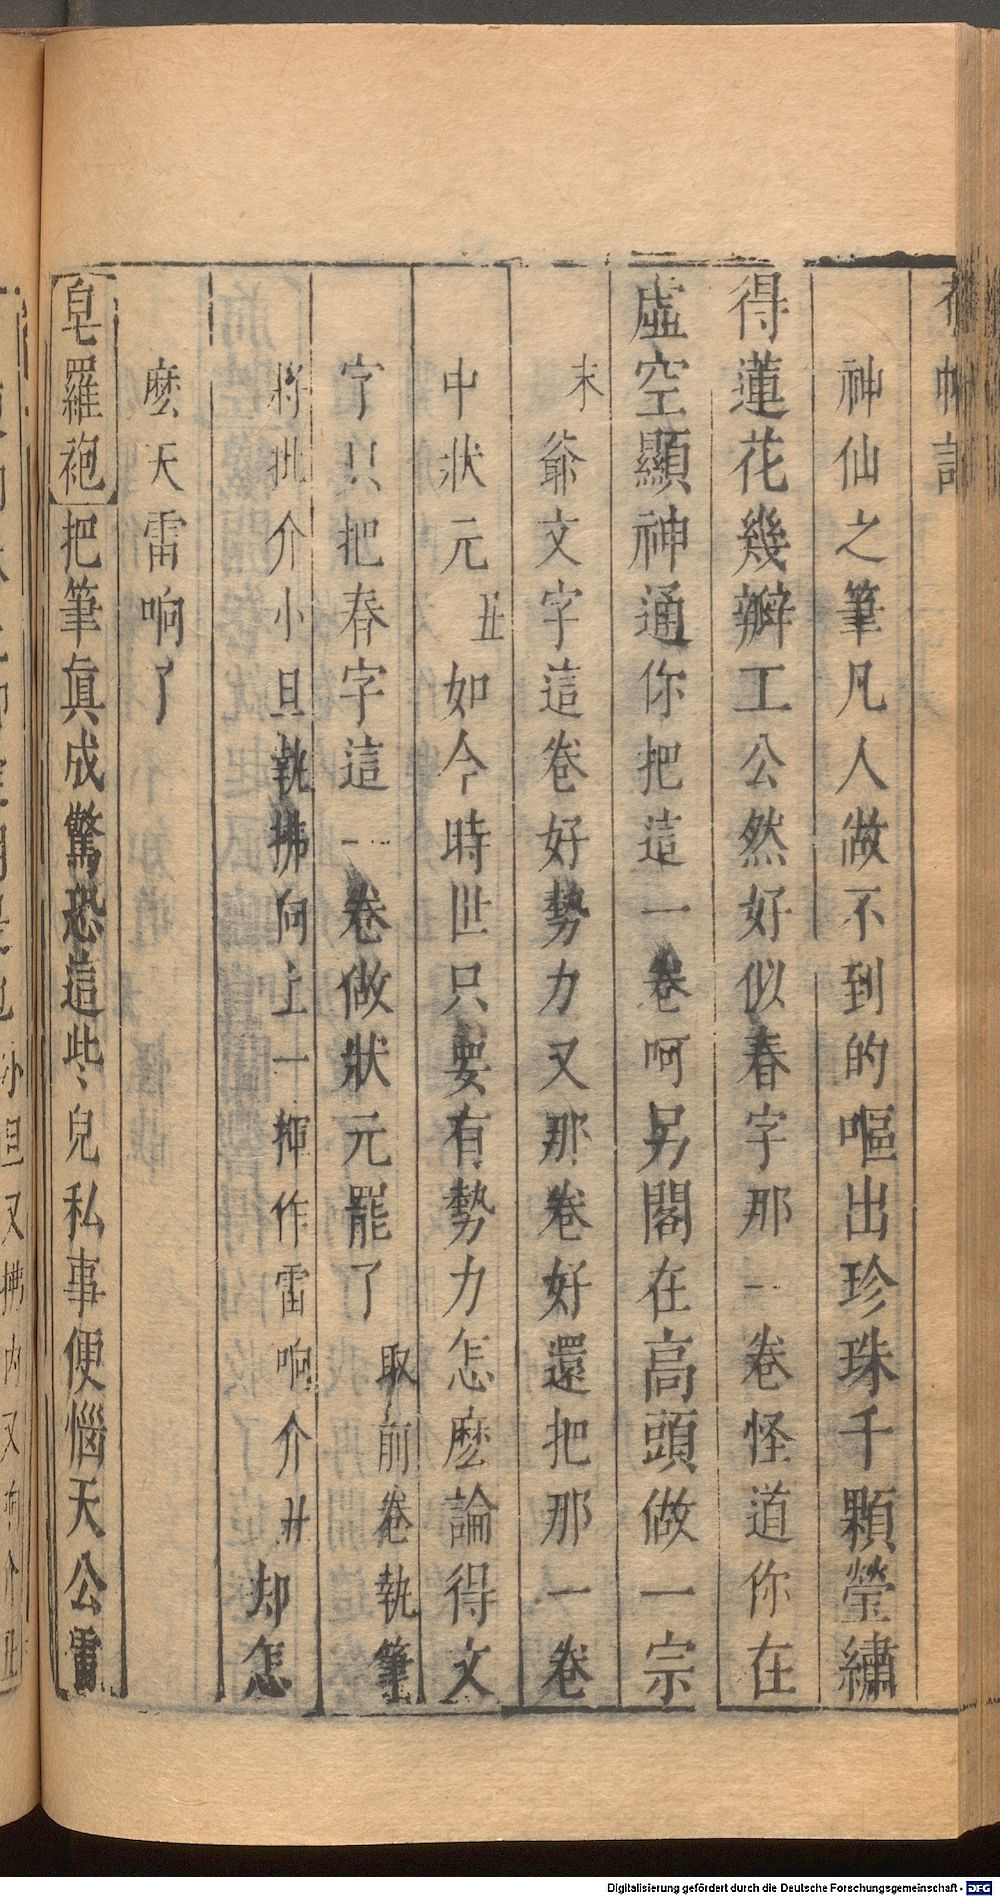 神仙之筆凡人做不到的嘔出珍珠千顆瑩繡
得蓮花幾瓣工公然好似春字那一卷怪道你在
虛空顯神通你把這一卷呵另閣在高頭做一宗
末爺文字這卷好勢力又那卷好還把那一卷
中狀元丑如今時世只要有勢力怎麽論得文
字只把春字這一卷做狀元罷了取前卷執筆
將批介小旦執拂向上一揮作雷响介丑却怎
麽天雷响了
皂羅袍把筆真成驚恐這些兒私事便惱天公雷
Digitalisierung gefördert durch die Deutsche Forschungsgemeinschaft - DFG